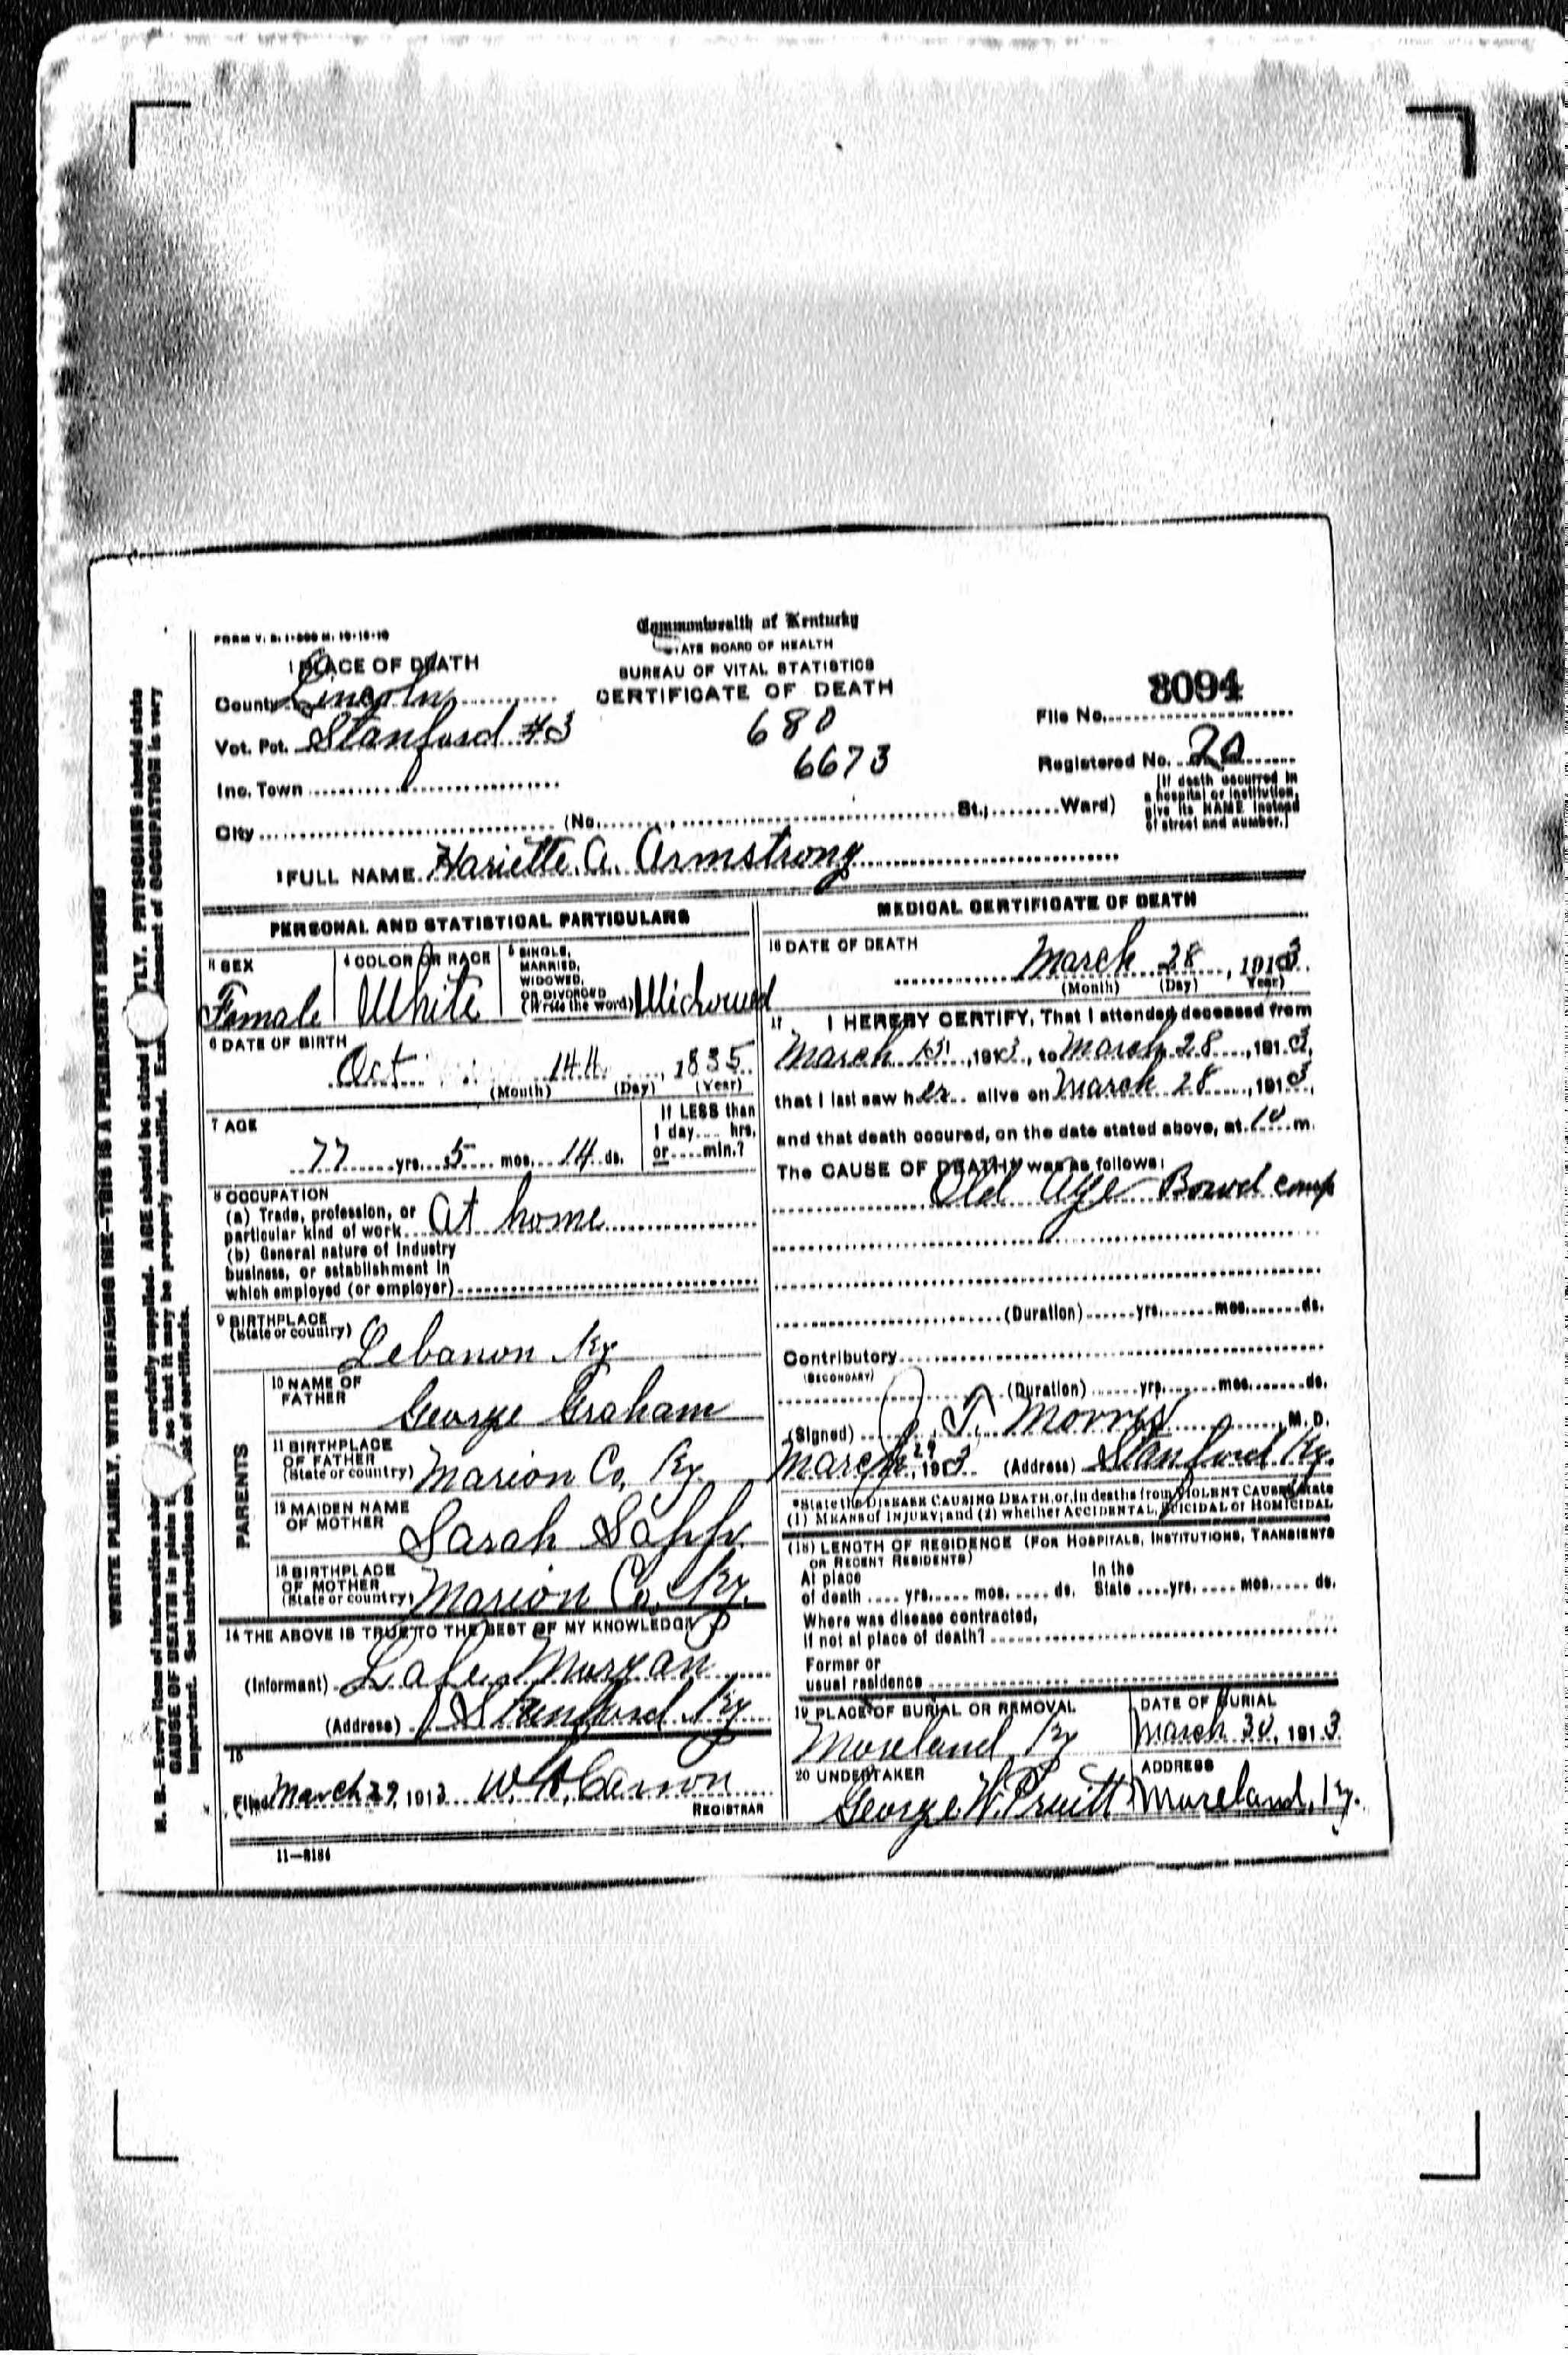 FORM V. S. 1-500 M. 10-18-10
Commonwealth of Kentucky
STATE BOARD OF HEALTH
BUREAU OF VITAL STATISTICS
CERTIFICATE OF DEATH
1 PLACE OF DEATH
County Lincoln
Vot. Pct. Stanford #3
Inc. Town
City (No. St., Ward)
680
6673
File No. 8094
Registered No. 20
(If death occurred in
a hospital or institution,
give its NAME instead
of street and number.)
FULL NAME Hariette. A. Armstrong
PERSONAL AND STATISTICAL PARTICULARS
SEX
Female
4 COLOR OR RACE
White
5 SINGLE,
MARRIED,
WIDOWED,
OR DIVORCED
(Write the word) Widowed
6 DATE OF BIRTH
Oct 14th, 1835
(Month) (Day) (Year)
7 AGE
77 yrs. 5 mos. 14 ds.
If LESS than
1 day.... hrs.
or....min.?
8 OCCUPATION
(a) Trade, profession, or
particular kind of work At home
(b) General nature of Industry
business, or establishment in
which employed (or employer)
9 BIRTHPLACE
(State or country) Lebanon Ky
PARENTS
10 NAME OF
FATHER George Graham
11 BIRTHPLACE
OF FATHER
(State or country) Marion Co, Ky
12 MAIDEN NAME
OF MOTHER Sarah
13 BIRTHPLACE
OF MOTHER
(State or country) Marion Co, Ky.
14 THE ABOVE IS TRUE TO THE BEST OF MY KNOWLEDGE
(Informant) Morgan
(Address) Stanford Ky
15
Filed March 29, 1913 W.
REGISTRAR
11-8184
MEDICAL CERTIFICATE OF DEATH
16 DATE OF DEATH
March 28, 1913
(Month) (Day) Year)
17 I HEREBY CERTIFY, That I attended deceased from
March 15, 1913, to March 28, 1913,
that I last saw her alive on March 28, 1913,
and that death occured, on the date stated above, at 10 m.
The CAUSE OF DEATH* was as follows:
Old Age Bowel comp
(Duration) yrs. mos. ds.
Contributory
(SECONDARY)
(Duration) yrs. mos. ds.
(Signed) J. T. Morris, M. D.
March 29, 1913 (Address) Stanford Ky.
*State the DISEASE CAUSING DEATH, or, in deaths from VIOLENT CAUSES, state
(1) MEANS of INJURY; and (2) whether ACCIDENTAL, SUICIDAL or HOMICIDAL
(18) LENGTH OF RESIDENCE (FOR HOSPITALS, INSTITUTIONS, TRANSIENTS
OR RECENT RESIDENTS)
At place In the
of death .... yrs. .... mos. .... ds. State .... yrs. .... mos. .... ds.
Where was disease contracted,
If not at place of death?
Former or
usual residence
19 PLACE OF BURIAL OR REMOVAL
Moreland Ky
DATE OF BURIAL
March 30, 1913
20 UNDERTAKER
George. W. Pruitt
ADDRESS
Moreland, Ky.
WRITE PLAINLY, WITH UNFADING INK-THIS IS A PERMANENT RECORD
N. B.-Every item of information carefully supplied. AGE should be stated PHYSICIANS should state
CAUSE OF DEATH in plain so that it may be properly classified. statement of OCCUPATION is very
important. See instructions on back of certificate.